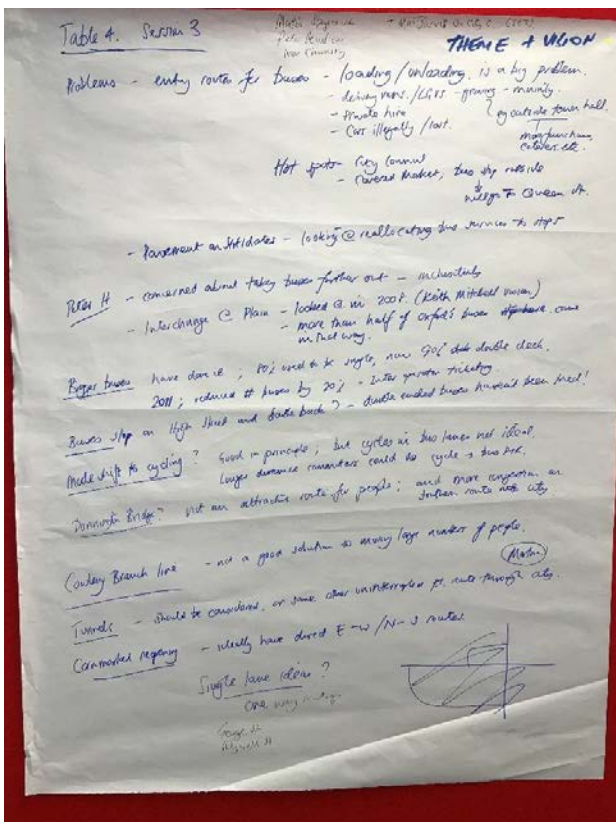 Table 4. Session 3
THEME + VISION
Problems - entry routes for buses - loading/unloading is a big problem.
- delivery vans/LGVs - growing - mainly
- Private hire
- Cars illegally
eg outside town hall.
Hot spots - City
- Covered Market, bus stop outside
Queen St.
- Pavement - looking @ reallocating bus services to stops
Peter H - concerned about taking buses further out -
- Interchange @ Plain - looked @ in 2008. (Keith Mitchell vision)
- more than half of Oxford's buses come
in that way.
Bigger buses have done it; 80% used to be single, now 90% double deck.
2011; reduced # buses by 20% - Inter operator ticketing.
Buses stop on High Street and double back? - double ended buses haven't been tried!
Mode shift to cycling? Good in principle; but cycles in bus lanes not ideal.
Longer distance commuters could do cycle + bus
Donnington Bridge? not an attractive route for people; and more congestion on
route into city
Cowley Branch line - not a good solution to moving large numbers of people.
Martin
Tunnels - should be considered, or some other uninterrupted route through city.
Cornmarket reopening - ideally have direct E-W/N-S routes.
Single lane ideas?
One way